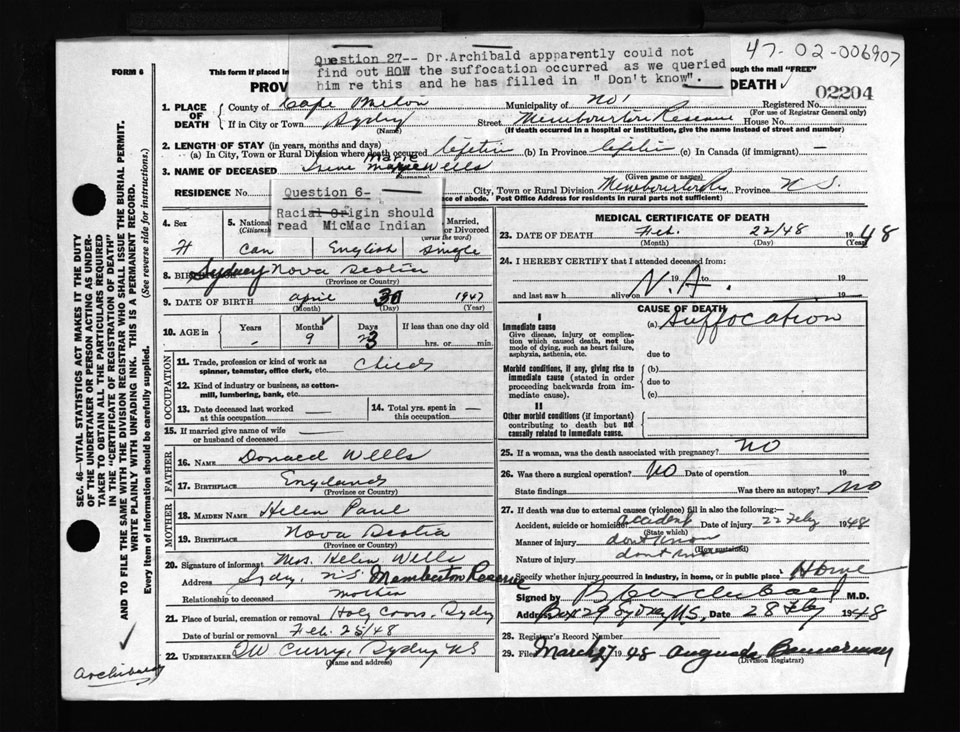 47-02-006907
Question 27-- Dr.Archibald appparently could not
find out HOW the suffocation occurred as we queried
him re this and he has filled in " Don't know".
FORM 6
This form if placed in
through the mail "FREE"
PROV
DEATH
02204
1. PLACE OF DEATH
County of Cape Breton
Municipality of No 1
Registered No.
(For use of Registrar General only)
If in City or Town Sydney
(Name)
Street Reserve House No.
(If death occurred in a hospital or institution, give the name instead of street and number)
2. LENGTH OF STAY (in years, months and days)
(a) In City, Town or Rural Division where death occurred lifetim (b) In Province lifetim (c) In Canada (if immigrant) —
3. NAME OF DECEASED Irene Marie Wells
(Given name or names)
RESIDENCE No.
City, Town or Rural Division Province N S.
place of abode. Post Office Address for residents in rural parts not sufficient)
Question 6-
Racial Origin should
read MicMac Indian
4. Sex
F
5. National
(Citizens
Can
English
Married,
or Divorced
(write the word)
Single
8. BIRTHPLACE Sydney Nova Scotia
(Province or Country)
9. DATE OF BIRTH April 30 1947
(Month) (Day) (Year)
10. AGE in
Years Months Days If less than one day old
- 9 23 hrs. or min.
OCCUPATION
11. Trade, profession or kind of work as
spinner, teamster, office clerk, etc. Child
12. Kind of industry or business, as cotton-
mill, lumbering, bank, etc.
13. Date deceased last worked
at this occupation
14. Total yrs. spent in
this occupation
15. If married give name of wife
or husband of deceased
FATHER
16. NAME Donald Wells
17. BIRTHPLACE England
(Province or Country)
MOTHER
18. MAIDEN NAME Helen Paul
19. BIRTHPLACE Nova Scotia
(Province or Country)
20. Signature of informant Mrs. Helen Wells
Address Sydney N.S. Memberton Reserve
Relationship to deceased mother
21. Place of burial, cremation or removal Holy Cross, Sydney
Date of burial or removal Feb. 25/48
22. UNDERTAKER DW Curry, Sydney NS
(Name and address)
MEDICAL CERTIFICATE OF DEATH
23. DATE OF DEATH Feb. 22/48 1948
(Month) (Day) (Year)
24. I HEREBY CERTIFY that I attended deceased from:
N.A. 19 to 19
and last saw h alive on 19
CAUSE OF DEATH
I
Immediate cause (a) Suffocation
Give disease, injury or complica-
tion which caused death, not the
mode of dying, such as heart failure,
asphyxia, asthenia, etc.
due to
Morbid conditions, if any, giving rise to
immediate cause (stated in order
proceeding backwards from im-
mediate cause).
(b)
due to
(c)
II
Other morbid conditions (if important)
contributing to death but not
causally related to immediate cause.
25. If a woman, was the death associated with pregnancy? NO
26. Was there a surgical operation? No Date of operation 19
State findings Was there an autopsy? No
27. If death was due to external causes (violence) fill in also the following:-
Accident, suicide or homicide? accident Date of injury 22 Feby 1948
(State which)
Manner of injury dont know
(How sustained)
Nature of injury dont know
Specify whether injury occurred in industry, in home, or in public place Home
Signed by B Archibald M.D.
Address Box 29 Sydney NS, Date 28 Feby 1948
28. Registrar's Record Number
29. Filed March 27 1948 Augusta Bannerman
(Division Registrar)
SEC. 46—VITAL STATISTICS ACT MAKES IT THE DUTY
OF THE UNDERTAKER OR PERSON ACTING AS UNDER-
TAKER TO OBTAIN ALL THE PARTICULARS REQUIRED
IN THE "CERTIFICATE OF REGISTRATION OF DEATH"
AND TO FILE THE SAME WITH THE DIVISION REGISTRAR WHO SHALL ISSUE THE BURIAL PERMIT.
WRITE PLAINLY WITH UNFADING INK. THIS IS A PERMANENT RECORD.
Every item of Information should be carefully supplied. (See reverse side for instructions.)
Archibald